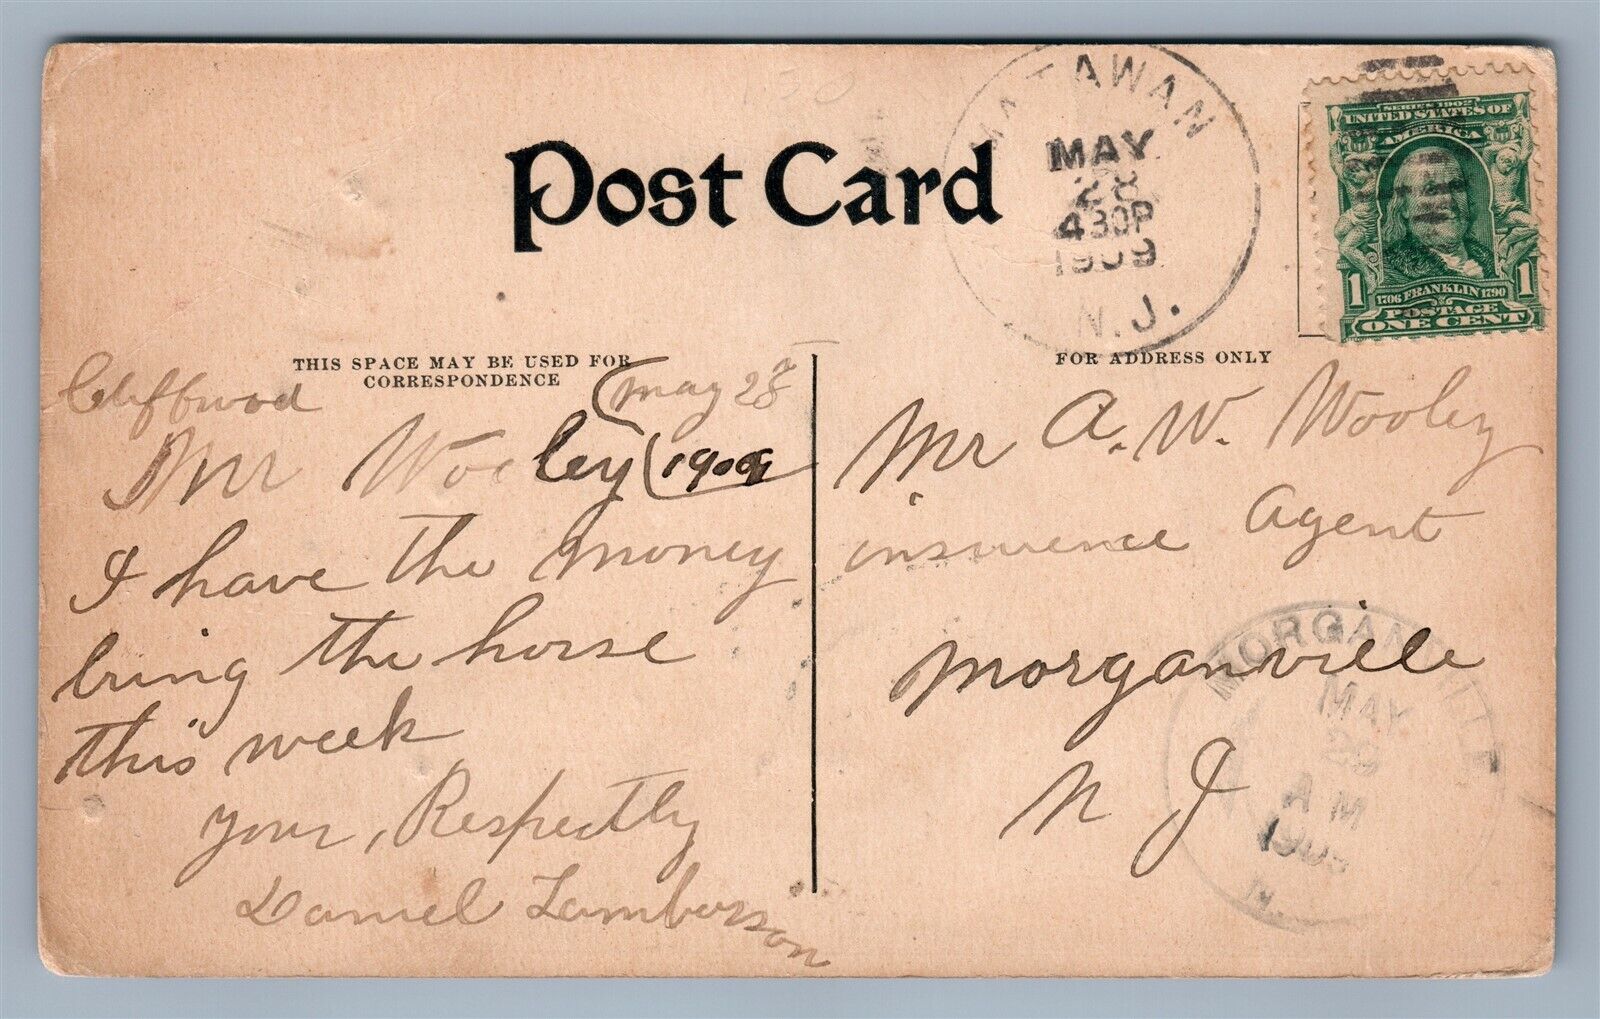 Post Card
MATAWAN
MAY
28
430P
1909
N.J.
SERIES 1902
UNITED STATES OF
AMERICA
1 1
1706 FRANKLIN 1790
POSTAGE
ONE CENT
THIS SPACE MAY BE USED FOR
CORRESPONDENCE
FOR ADDRESS ONLY
Cliffwood
(may 28
Mr Wooley (1909
I have the money
bring the horse
this week
your, Respectly
Daniel Lamberson
Mr A. W. Wooley
insurence Agent
Morganville
N J
MORGANVILLE
MAY
29
AM
1909
N.